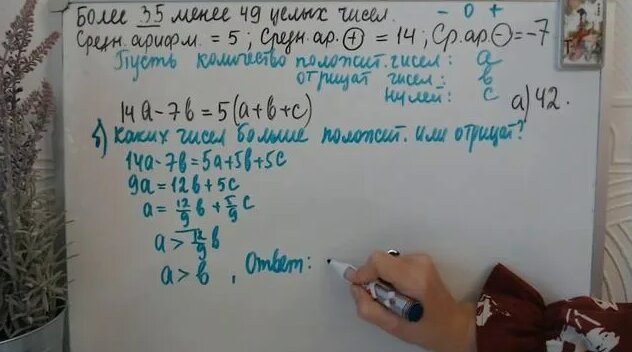 Более 35 менее 49 целых чисел.
- 0 +
Средн. арифм. = 5 ; Средн. ар. ⊕ = 14 ; Ср. ар. ⊖ = -7
Пусть количество положит. чисел: a
отрицат чисел: b
нулей: c
a) 42.
14a-7b=5(a+b+c)
б) Каких чисел больше положит. или отрицат?
14a-7b=5a+5b+5c
9a=12b+5c
a = 12/9 b + 5/9 c
a > 12/9 b
a > b , Ответ: